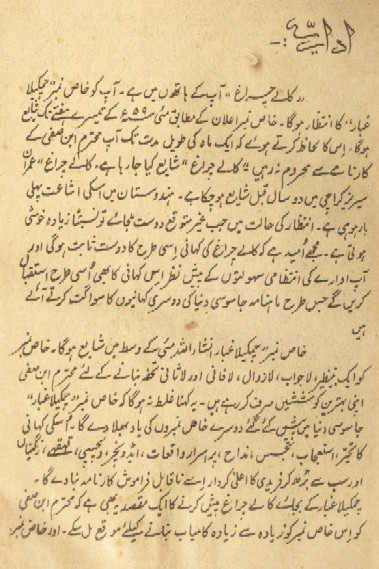 اداریہ :-
"کالے چراغ" آپ کے ہاتھوں میں ہے۔ آپ کو خاص نمبر "چمکیلا
غبار" کا انتظار ہوگا۔ خاص نمبر اعلان کے مطابق مئی ۵۹ء کے تیسرے ہفتے تک شائع
ہوگا۔ اس کا لحاظ کرتے ہوئے کہ ایک ماہ کی طویل مدت تک آپ محترم ابن صفی کے
کارنامے سے محروم نہ رہیں "کالے چراغ" شایع کیا جا رہا ہے۔ کالے چراغ "عمران
سیریز کراچی میں دو سال قبل شایع ہو چکا ہے۔ ہندوستان میں اسکی اشاعت پہلی
بار ہو رہی ہے۔ انتظار کی حالت میں جب غیر متوقع دوست مل جائے تو نسبتاً زیادہ خوشی
ہوتی ہے۔ مجھے اُمید ہے کہ کالے چراغ کی کہانی اسی طرح کا دوست ثابت ہوگی اور
آپ ادارے کی انتظامی سہولتوں کے پیش نظر اس کہانی کا بھی اُسی طرح استقبال
کریں گے جس طرح ماہنامہ جاسوسی دنیا کی دوسری کہانیوں کا سواگت کرتے آئے
ہیں
خاص نمبر "چمکیلا غبار انشاء اللہ مئی کے وسط میں شایع ہوگا۔ خاص نمبر
کو ایک بے نظیر، لاجواب، لازوال، لافانی اور لاثانی تحفہ بنانے کے لئے محترم ابن صفی
اپنی بہترین کوششیں صرف کر رہے ہیں۔ یہ کہنا غلط نہ ہوگا کہ خاص نمبر "چمکیلا غبار"
جاسوسی دنیا میں پیش کئے گئے دوسرے خاص نمبروں کی یاد بھلا دے گا۔ اسکی کہانی
کا تحیر، استعجاب، تجسس، مزاح، پراسرار واقعات، انڈونچر، دلچسپی، قہقہے، رنگینیاں
اور سب سے بڑھ کر فریدی کا اعلیٰ کردار اسے ناقابل فراموش کارنامہ بنا دے گا۔
چمکیلا غبار کے بجائے کالے چراغ پیش کرنے کا ایک مقصد یہ بھی ہے کہ محترم ابن صفی کو
کو اس خاص نمبر کو زیادہ سے زیادہ کامیاب بنانے کیلئے موقع مل سکے۔ اور خاص نمبر